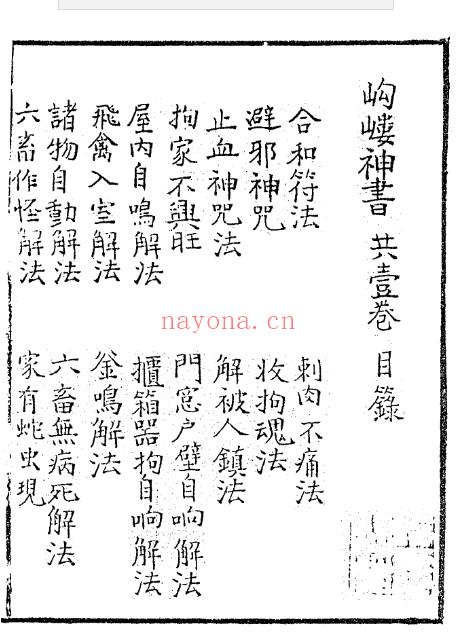 岣嶁神書 共壹卷 目錄
合和符法 刺肉不痛法
避邪神咒 收拘魂法
止血神咒法 解被人鎮法
拘家不興旺 門窓户壁自响解法
屋内自鳴解法 櫃箱器拘自响解法
飛禽入室解法 釜鳴解法
諸物自動解法 六畜無病死解法
六畜作怪解法 家有蛇虫現
nayona.cn